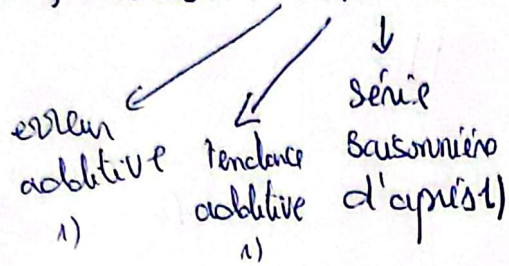 erreur
additive
1)
tendance
additive
1)
série
saisonnière
d'après 1)